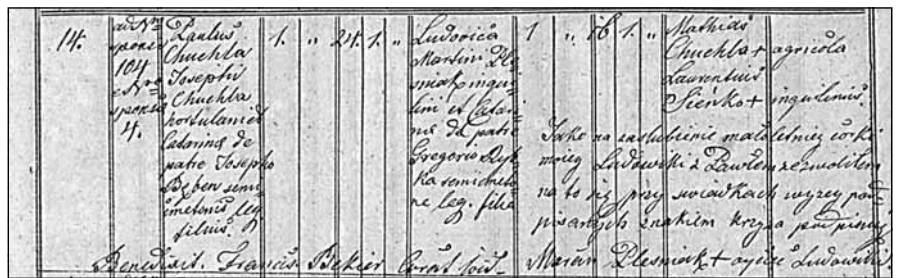 14.
ad Nrum
sponsi
104
e Nro
sponsae
4.
Paulus
Chuchla
Josephi
Chuchla
hortulani et
Catarinae de
patre Josepho
Bęben semi
cmetonis leg.
filius.
1. " 24. 1. "
Ludovica
Martini Ple
śniak inqui=
lini et Catari
nae de patre
Gregorio
ka semicmeto
ne leg. filia
1 " 16 1. "
Mathias
Chuchla + agricola
Laurentius
Sieńko + inquilinus.
Jako na zaślubienie małoletniey córki
moiey Ludowiki z Pawłem zezwoliłem
na to się przy świadkach wyżey pod=
pisanych znakiem krzyża podpisuię
Benedixit. Francis. Bekier
Marcin Plesniak + oyciec Ludowiki